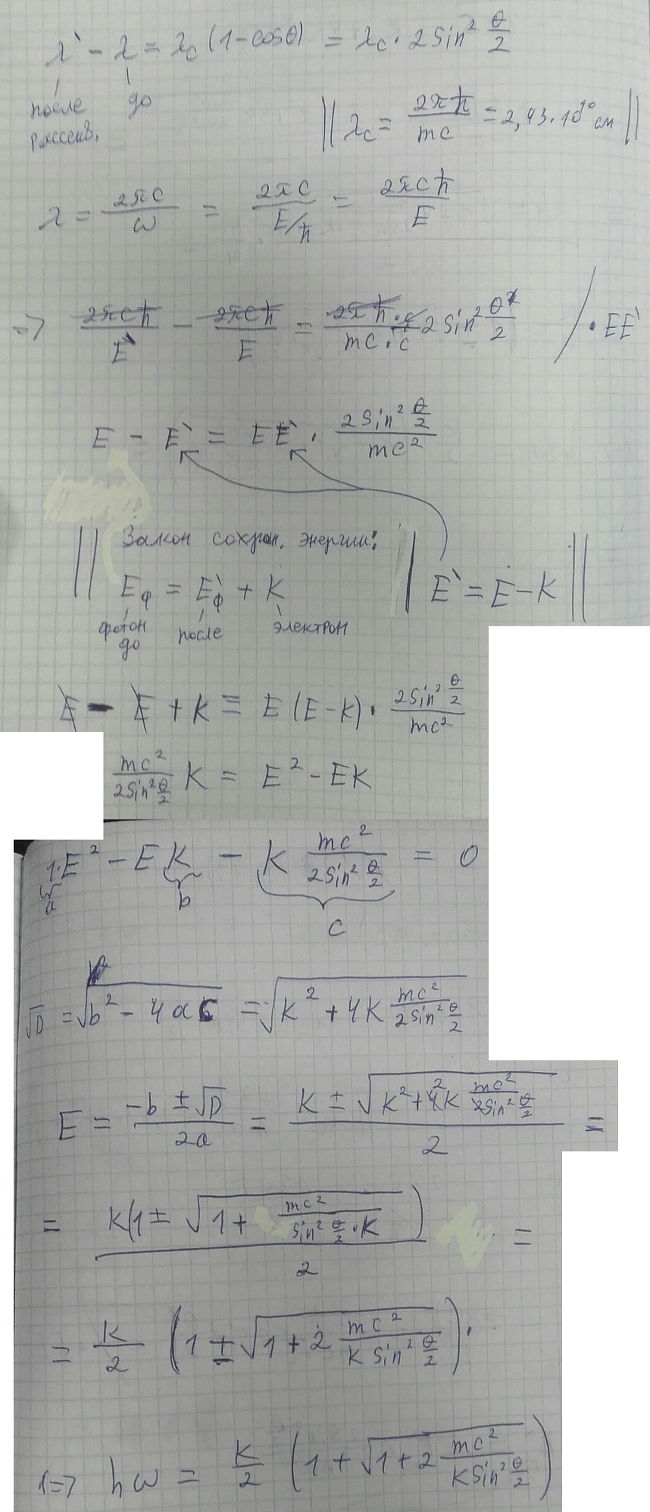 λ` - λ = λc (1-cosθ) = λc · 2 Sin² θ/2
после рассеив. до
|| λc = 2πħ/mc = 2,43·10⁻¹⁰ см ||
λ = 2πc/ω = 2πc/(E/ħ) = 2πcħ/E
=> 2πcħ/E` - 2πcħ/E = 2πħ·c/mc·c 2 Sin² θ/2 / · EE`
E - E` = EE` · 2 Sin² θ/2 / mc²
|| Закон сохран. энергии:
Eф = Eф` + K || E` = E - K ||
фотон до после электрон
E - E + K = E (E-K) · 2 Sin² θ/2 / mc²
mc²/2Sin² θ/2 K = E² - EK
1·E² - EK - K mc²/2Sin² θ/2 = 0
a b c
√D = √(b² - 4ac) = √(K² + 4K mc²/2Sin² θ/2)
E = (-b ± √D)/2a = (K ± √(K² + 4²K mc²/2Sin² θ/2))/2 =
= K(1 ± √(1 + mc²/Sin² θ/2 · K))/2 =
= K/2 (1 ± √(1 + 2 mc²/K Sin² θ/2)).
=> ħω = K/2 (1 + √(1 + 2 mc²/K Sin² θ/2))